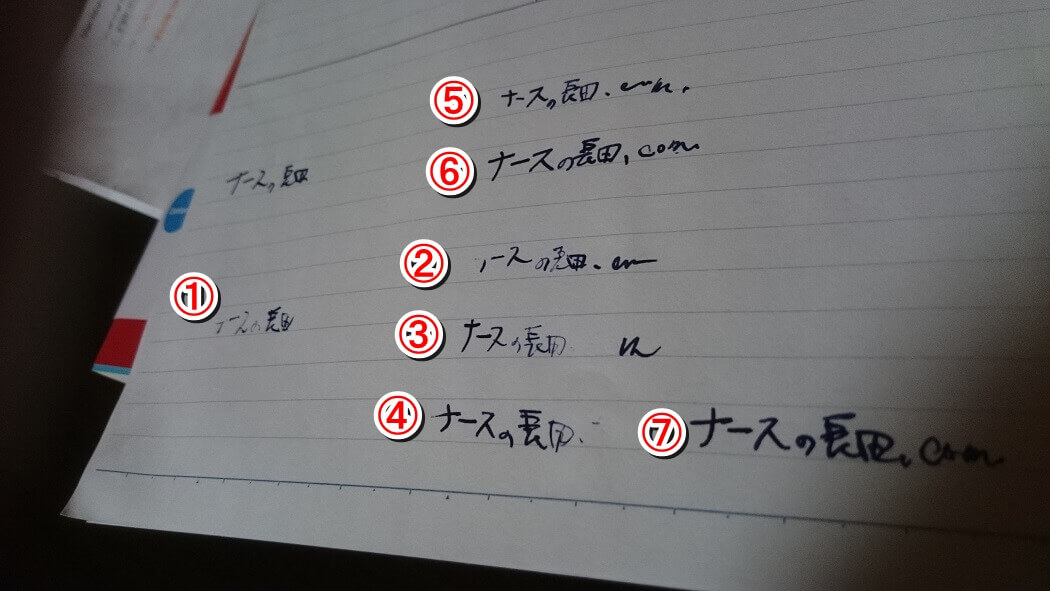 ⑤ ナースの長田.com.
⑥ ナースの長田.com
ナースの長田
② ナースの長田.com
① ナースの長田
③ ナースの長田 m
④ ナースの長田.
⑦ ナースの長田.com